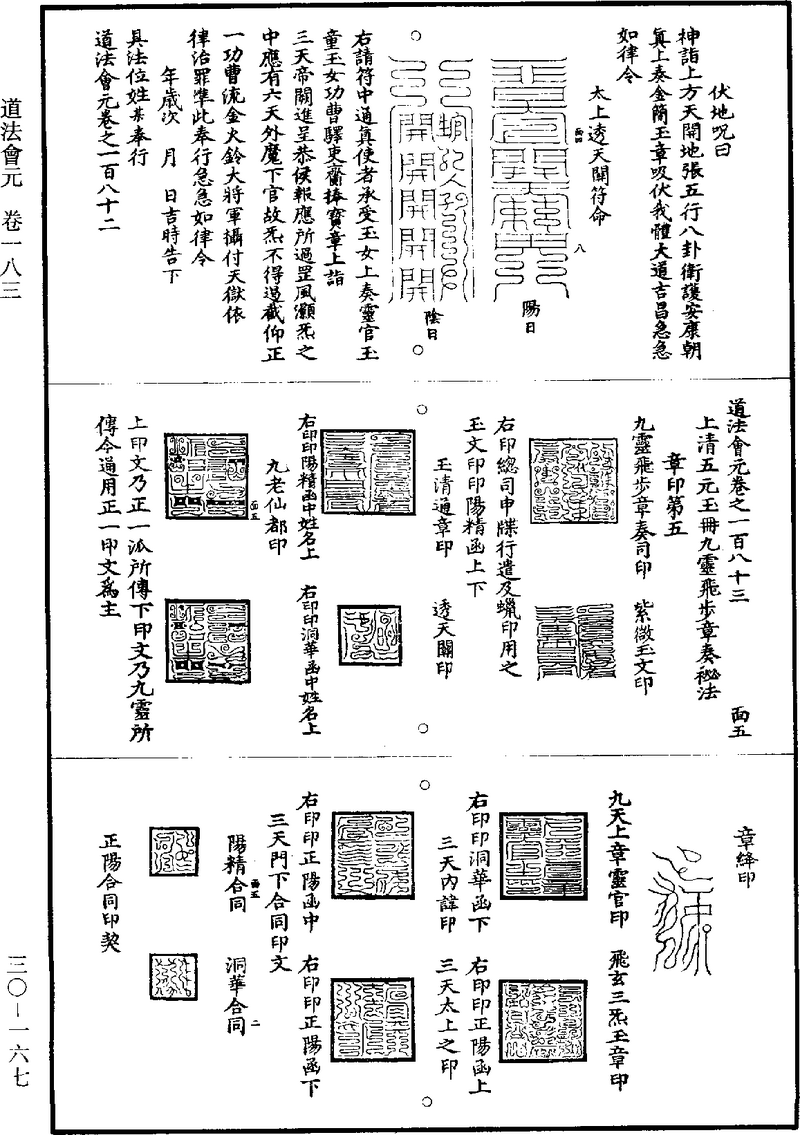 道法會元　卷一八三
三〇－一六七
伏地呪曰
神詣上方天開地張五行八卦衛護安康朝
眞上奏金簡玉章吸伏我體大道吉昌急急
如律令
太上透天關符命
面四
八
陽日
陰日
開開開開開
開開開開開
右請符中通眞使者承受玉女上奏靈官玉
童玉女功曹驛吏齎捧寶章上詣
三天帝闕進呈恭俟報應所過罡風灝炁之
中應有六天外魔下官故炁不得遏截仰正
一功曹流金火鈴大將軍攝付天獄依
律治罪準此奉行急急如律令
年歲次　月　日吉時告下
具法位姓某奉行
道法會元卷之一百八十二
道法會元卷之一百八十三
面五
上清五元玉冊九靈飛步章奏祕法
章印第五
九靈飛步章奏司印
紫微玉文印
右印總司申牒行遣及蠟印用之
玉文印印陽精函上下
玉清通章印
透天關印
右印印陽精函中姓名上
右印印洞華函中姓名上
九老仙都印
面五
上印文乃正一派所傳下印文乃九靈所
傳今通用正一印文爲主
章絳印
九天上章靈官印
飛玄三炁玉章印
右印印洞華函下
右印印正陽函上
三天內諱印
三天太上之印
右印印正陽函中
右印印正陽函下
三天門下合同印文
陽精合同
面五
洞華合同
二
正陽合同印契